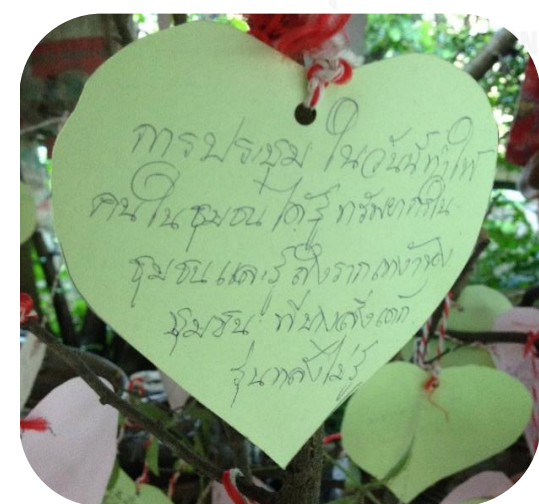 การประชุม ในวันนี้ทำให้
คนในชุมชน ได้รู้ ทรัพยากรใน
ชุมชนและรู้ ถึงรากเหง้าของ
ชุมชน ที่บางสิ่งเด็ก
รุ่นหลังไม่รู้